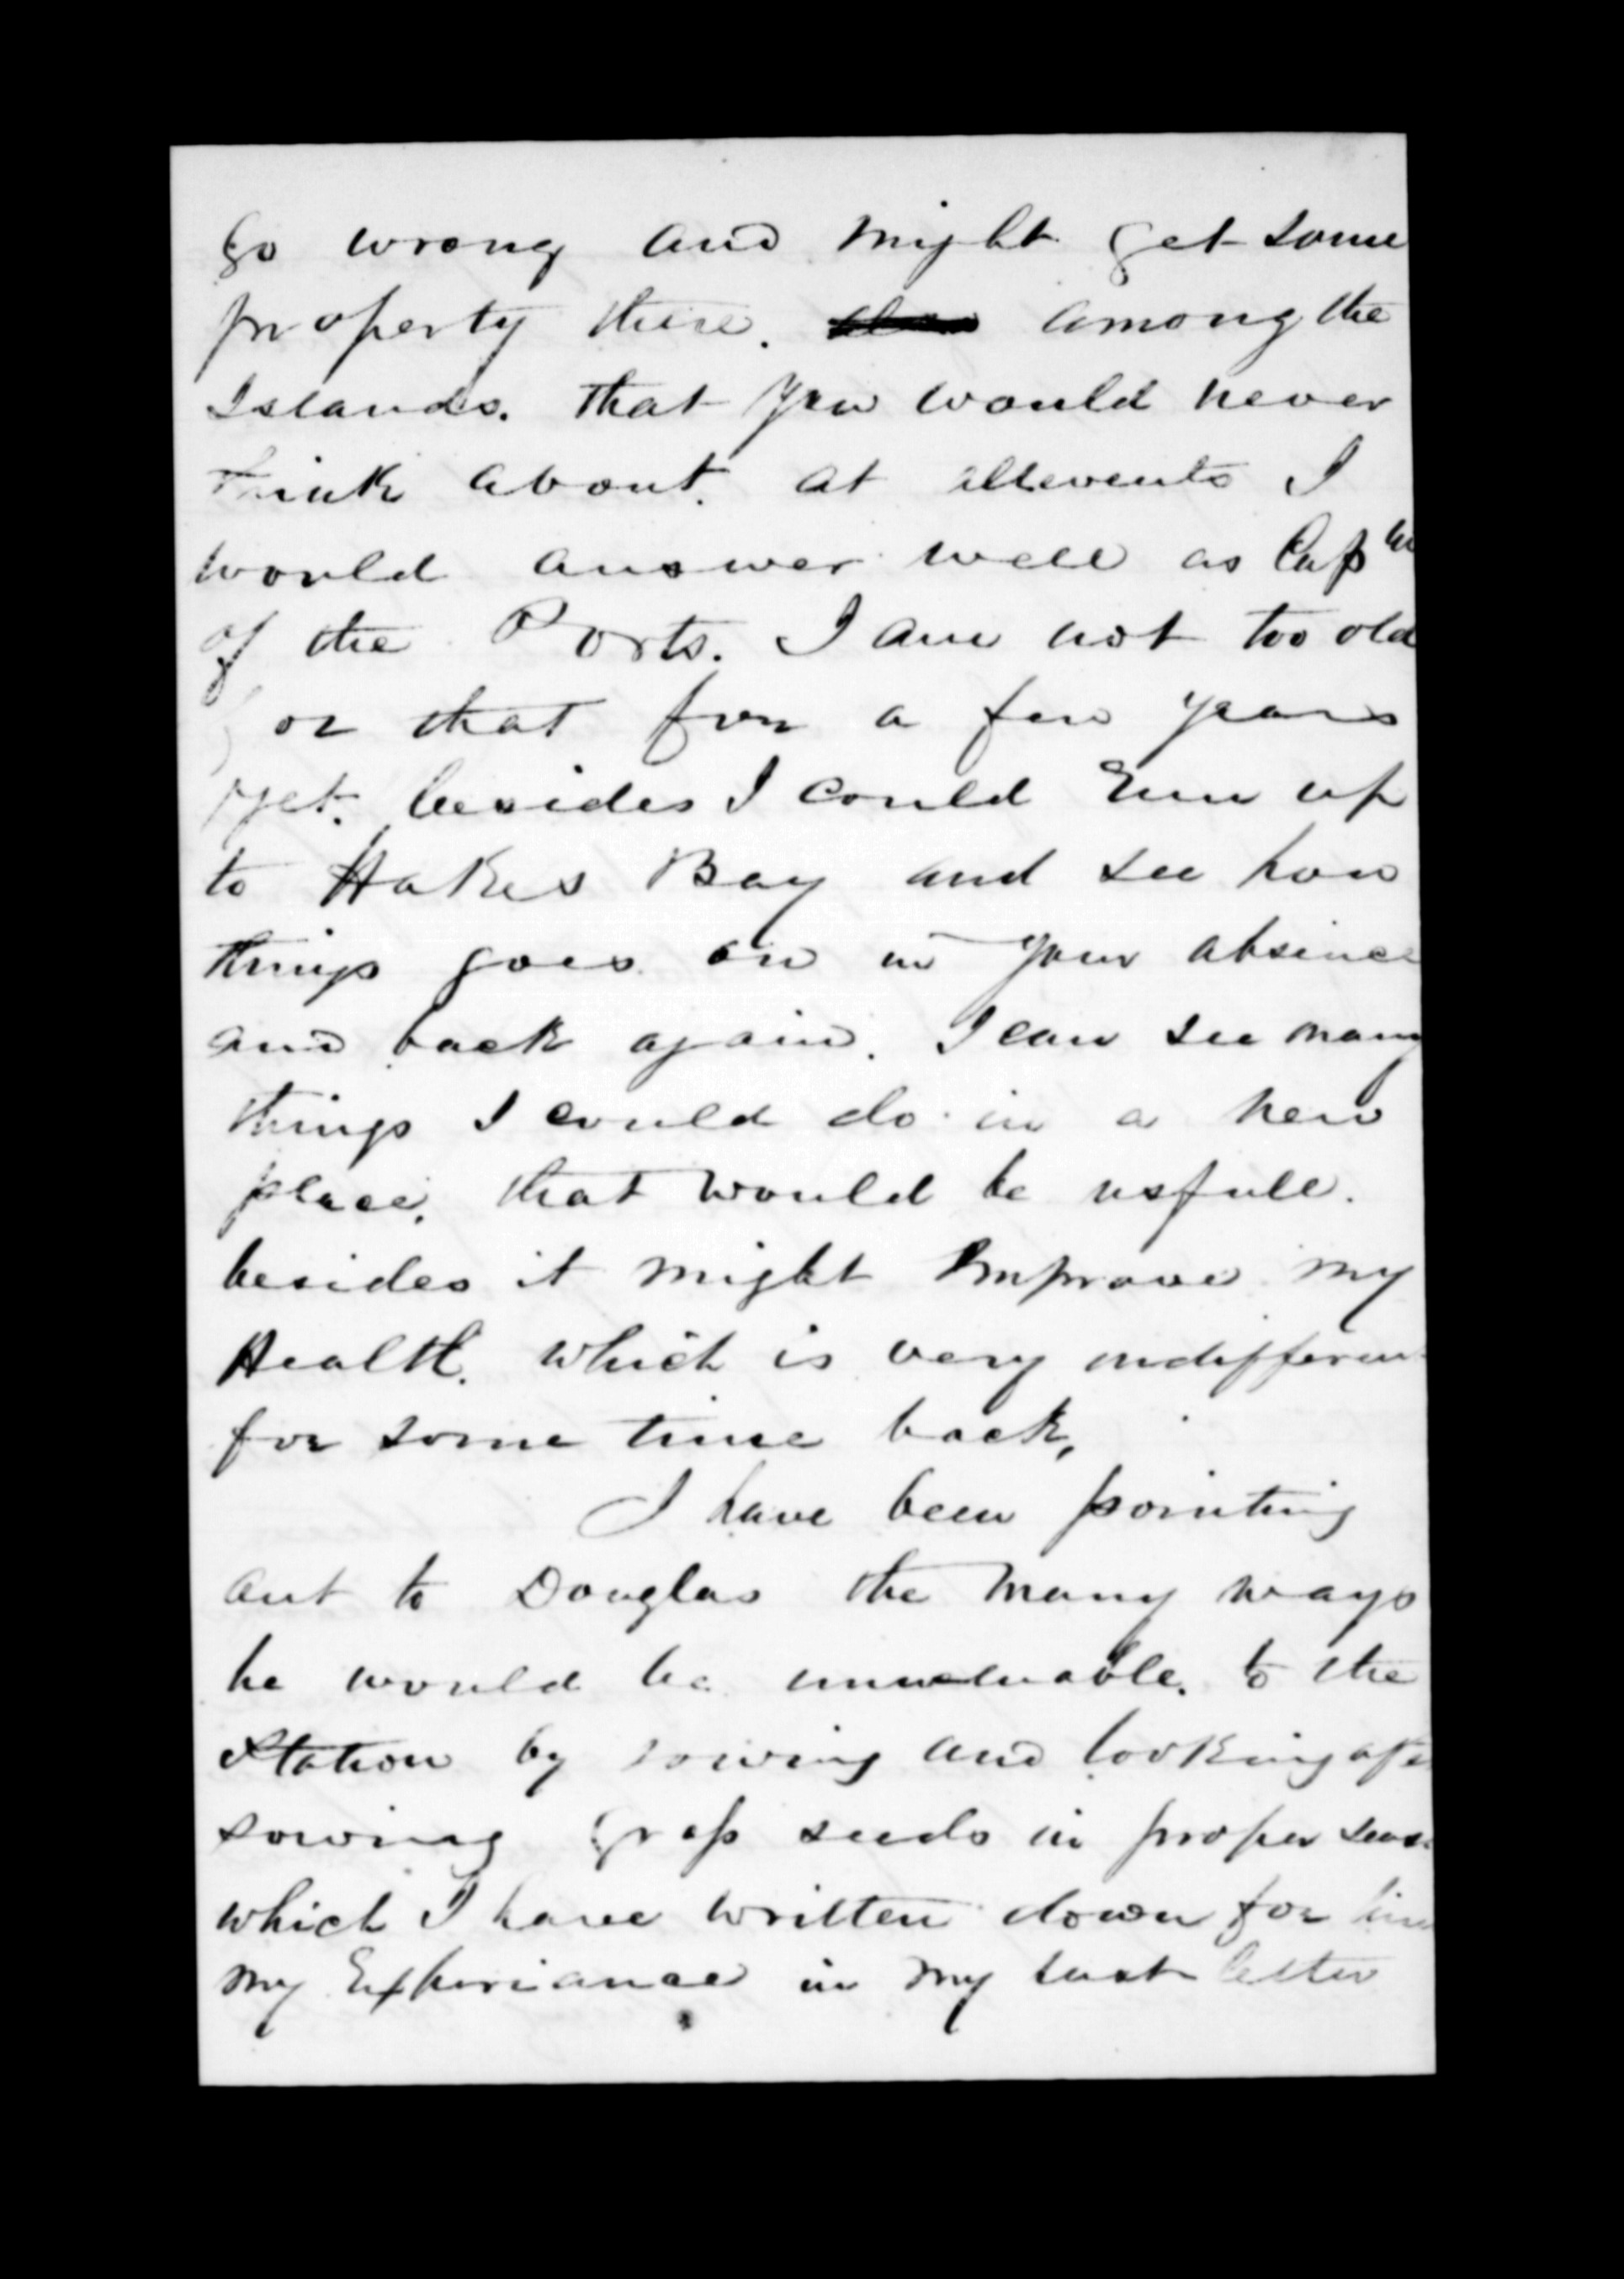 go wrong and might get some
property there. among the
Islands. that you would never
think about. at allevents I
would answer well as Capn
of the Ports. I am not too old
for that for a few years
yet. besides I could run up
to Hakes Bay and see how
things goes on in your absence
and back again. I can see many
things I could do in a new
place. that would be usfull.
besides it might Improve my
Health. which is very indifferent
for some time back,
I have been pointing
out to Douglas the many ways
he would be to the
Station by sowing and looking after
sowing Grass seeds in proper
which I have written down for him
my Experiance in my last letter